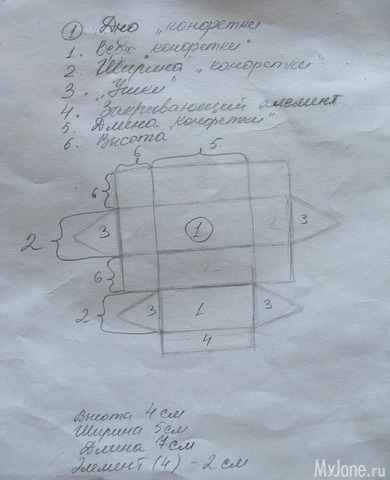 ① Дно „конфетки
1. Верх „конфетки"
2. Ширина „конфетки"
3. „Ушки"
4. Закрывающий элемент
5. Длина „конфетки"
6. Высота
6 5.
6
3 1 3
2
6
2 3 1 3
4
Высота 4 см
Ширина 5 см
Длина 7 см
Элемент (4) - 2 см
MyJane.ru